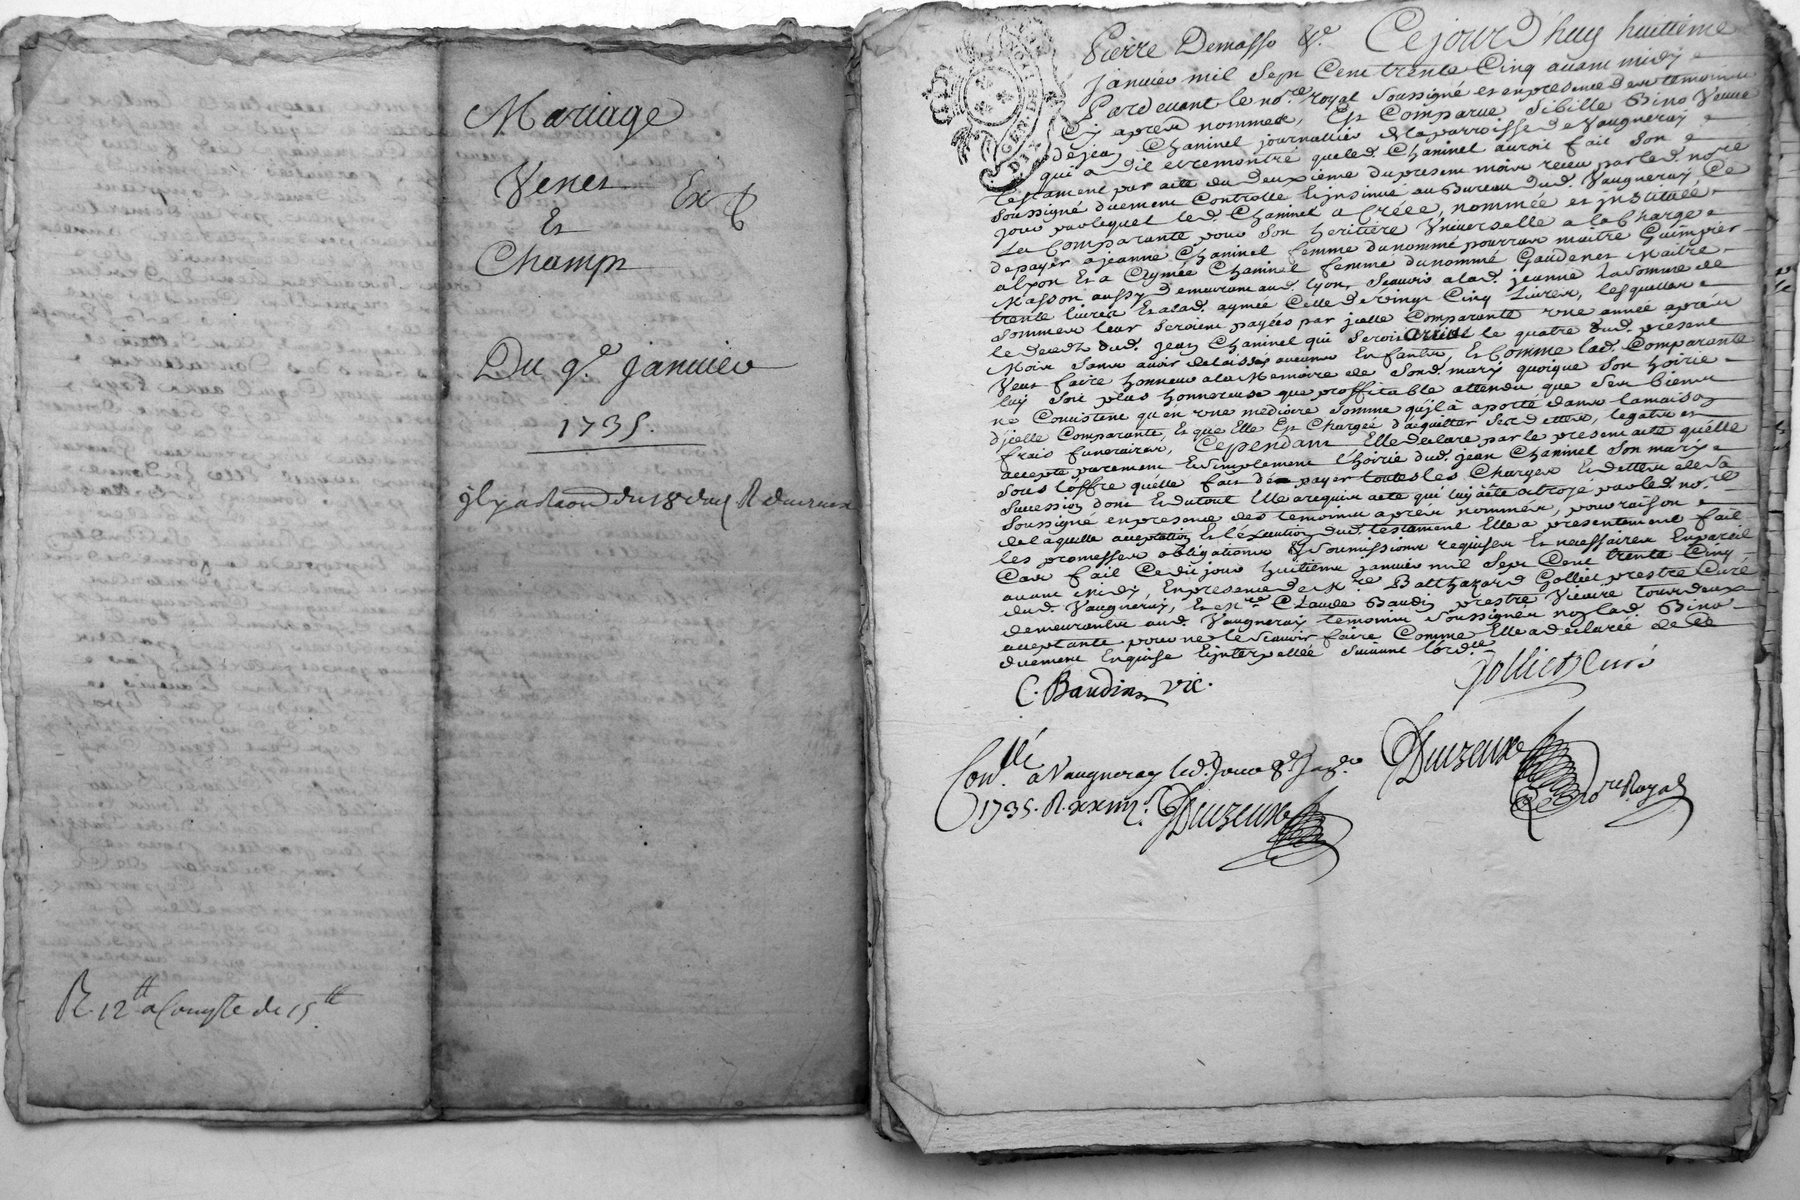 Mariage
Venet Ex
Et
Champt
Du 9e janvier
1735.
R. 12tt a Compte de 15tt
GEN. DE
DIX
Pierre Demasso &c Ce jourd'huy huitiéme
janvier mil sept Cent trente Cinq avant midy
Pardevant le nore royal soussigné et en presence des temoins
Cy apres nommes, Est Comparue Sibille Bino Veuve
de jean Chaninel journallier de la parroisse de Vaugneray
qui a dit et remontré que led. Chaninel auroit fait son
testament par acte du deuxiéme du present mois receu par led. nore
soussigné duement Controllé Et jnsinué au Bureau dud. Vaugneray, Ce
jour par lequel led. Chaninel a Créée, nommée et jnstituée
La Comparante pour son heritiere Universelle a la Charge
de payer à jeanne Chaninel femme du nommé pourrat maitre Guimpier
a lyon Et a Aymée Chaninel femme du nommé Gaudenet Maitre
Masson aussy demeurant aud. lyon, scavoir a lad. jeanne la somme de
trente livres Et a lad. aymée Celle de vingt Cinq Livres, lesquelles
sommes leur seroient payées par jcelle Comparante une année apres
le deceds dud. jean Chaninel qui seroit arrivé le quatre dud. present
Mois sans avoir delaissés aucuns Enfants, Et Comme lad. Comparante
Veut faire honneur a la Memoire de sond. mary quoique son hoirie
luy soit plus honnereuse que proffitable attendu que ses biens
ne Consistent qu'en une mediocre somme qu'jl à aporté dans la maison
d'jcelle Comparante, Et que Elle Est Chargée d'acquitter ses dettes, legats et
frais funeraires, Cependant Elle declare par le present acte qu'elle
accepte purement Et simplement l'hoirie dud. jean Chaninel son mary
sous l'offre quelle fait de payer toutes les Charges Et dettes de la
succession dont Et du tout Elle a requis acte qui luy a été octroyé par led. nore
soussigné en presence des temoins apres nommes, pour raison
de laquelle acceptation Et l'éxecution dud. testament Elle a presentement fait
les promesses obligations & soumissions requises Et necessaires En pareil
Cas fait Ce dit jour huitiéme janvier mil sept Cent trente Cinq
avant Midy, En presence de Mre Balthazard Jolliet prestre Curé
dud. Vaugneray, Et Mre Claude Baudin prestre Vicaire tous deux
demeurants aud. Vaugneray temoins soussignes non lad. Bino
acceptante pour ne le scavoir faire Comme Elle a declarée de Ce
duement Enquise Et jnterpellée suivant l'ordce
C. Baudin vic. Jolliet Curé
Conllé a Vaugneray led. jour 8e janer
1735. Duizeux Duizeux
Nore Royal